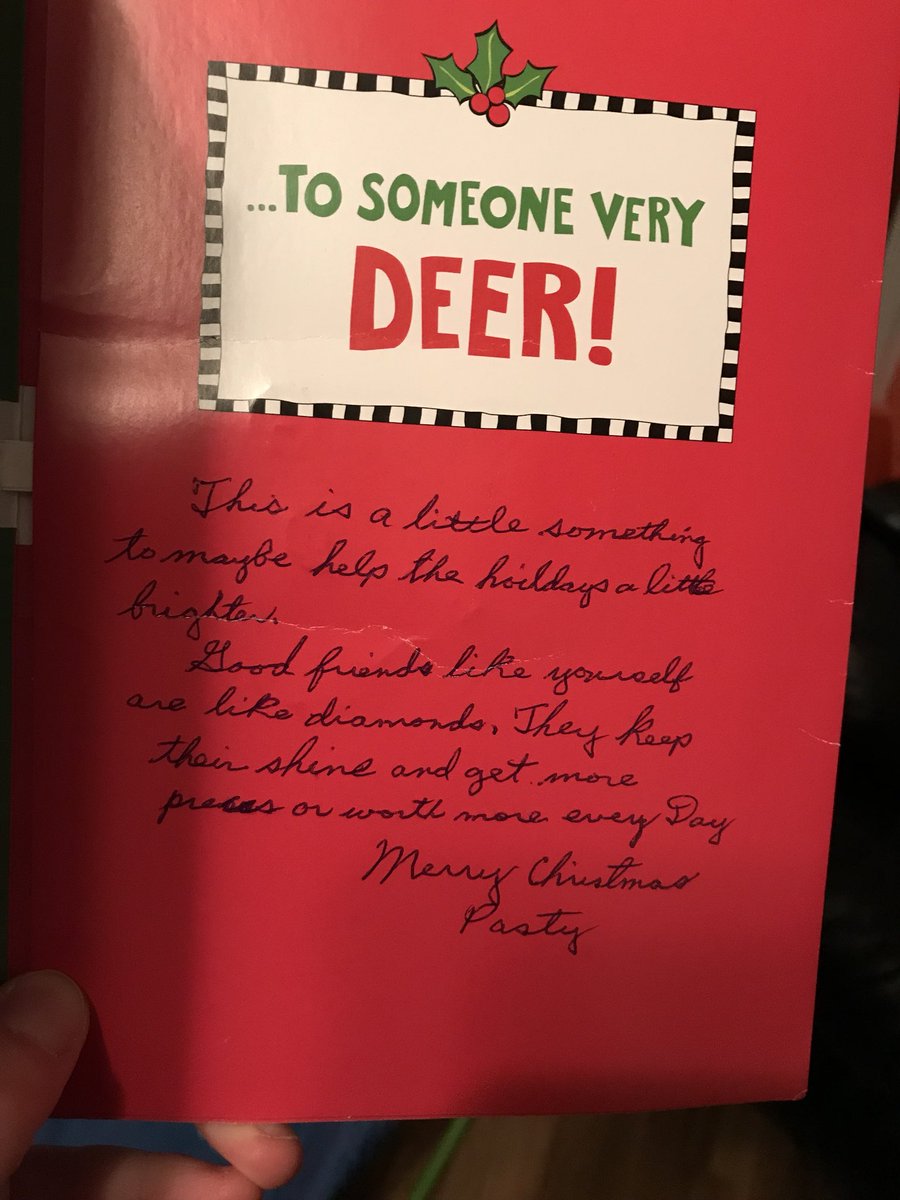 ...TO SOMEONE VERY
DEER!
This is a little something
to maybe help the hoildays a little
brighter.
Good friends like yourself
are like diamonds. They keep
their shine and get more
or worth more every Day
Merry Christmas
Pasty